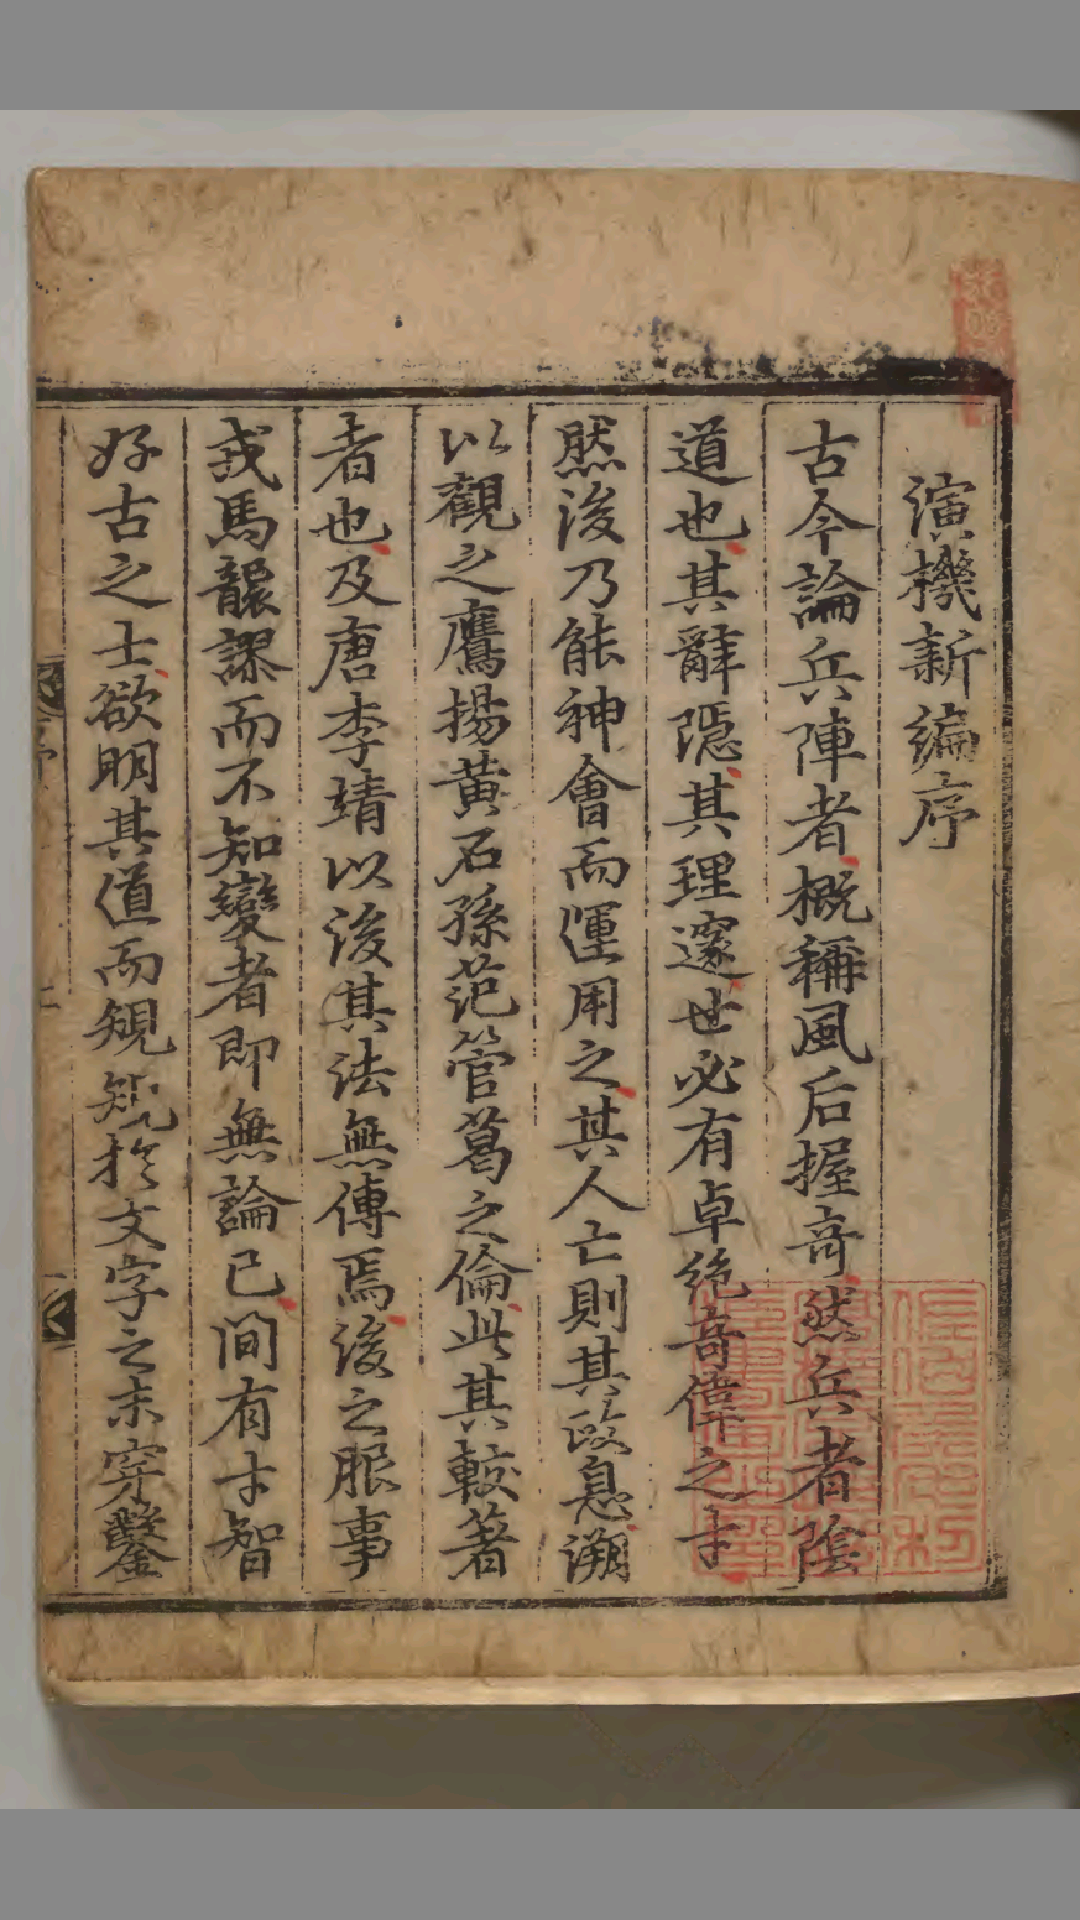 演機新編序
古今論兵陣者概稱風后握奇然兵者陰
道也其辭隱其理邃世必有卓絶奇偉之才
然後乃能神會而運用之其人亡則其政息溯
以觀之鷹揚黃石孫范管葛之倫此其較著
者也及唐李靖以後其法無傳焉後之服事
戎馬襲謬而不知變者即無論已間有才智
好古之士欲明其道而規規於文字之末穿鑿